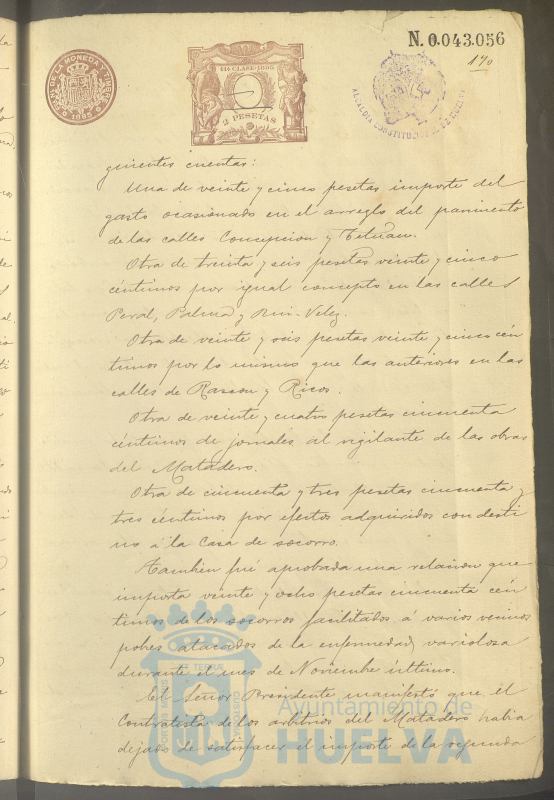 N. 0.043.056
170
11ª CLASE-1895
2 PESETAS
1895
ALCALDIA CONSTITUCIONAL DE HUELVA
guientes cuentas:
Una de veinte y cinco pesetas importe del
gasto ocasionado en el arreglo del pavimento
de las calles Concepcion y Tetuan.
Otra de treinta y seis pesetas veinte y cinco
céntimos por igual concepto en las calles
Peral, Palma y Rui-Velez.
Otra de veinte y seis pesetas veinte y cinco cén
timos por lo mismo que las anteriores en las
calles de Rascon y Ricos.
Otra de veinte y cuatro pesetas cincuenta
céntimos de jornales al vigilante de las obras
del Matadero.
Otra de cincuenta y tres pesetas cincuenta y
tres céntimos por efectos adquiridos con desti
no á la Casa de socorro.
Tambien fué aprobada una relacion que
importa veinte y ocho pesetas cincuenta cén
timos de los socorros facilitados á varios vecinos
pobres atacados de la enfermedad variolosa
durante el mes de Noviembre último.
El Señor Presidente manifestó que el
Contratista de los arbitrios del Matadero habia
dejado de satisfacer el importe de la segunda
Ayuntamiento de
HUELVA